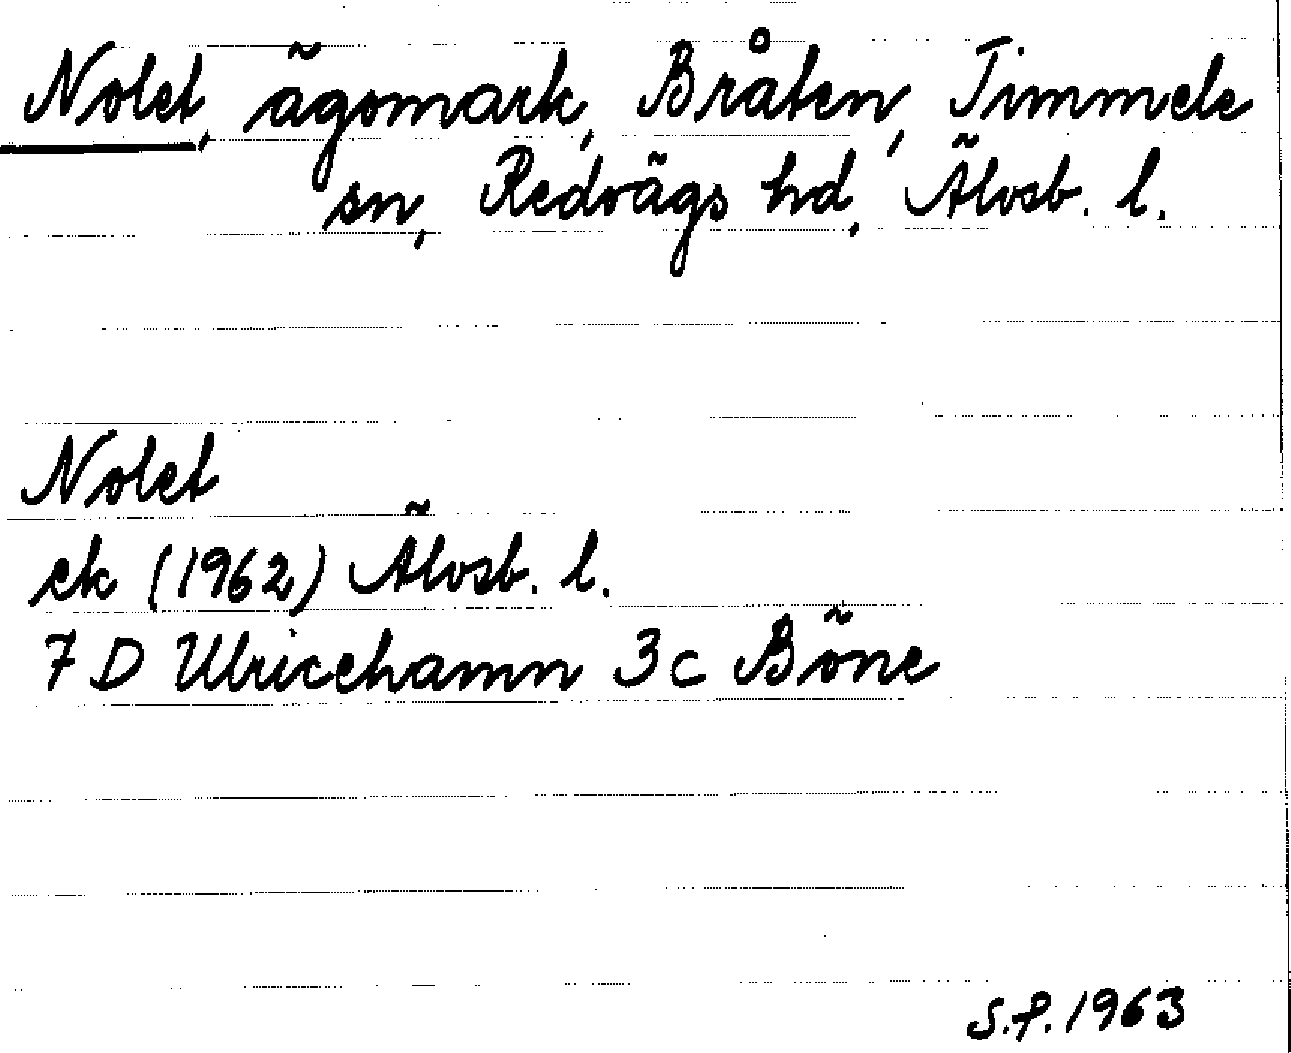 Nolet, ägomark, Bråten, Timmele
sn, Redvägs hd, Älvsb. l.
Nolet
ek (1962) Älvsb. l.
7 D Ulricehamn 3c Böne
S.P. 1963